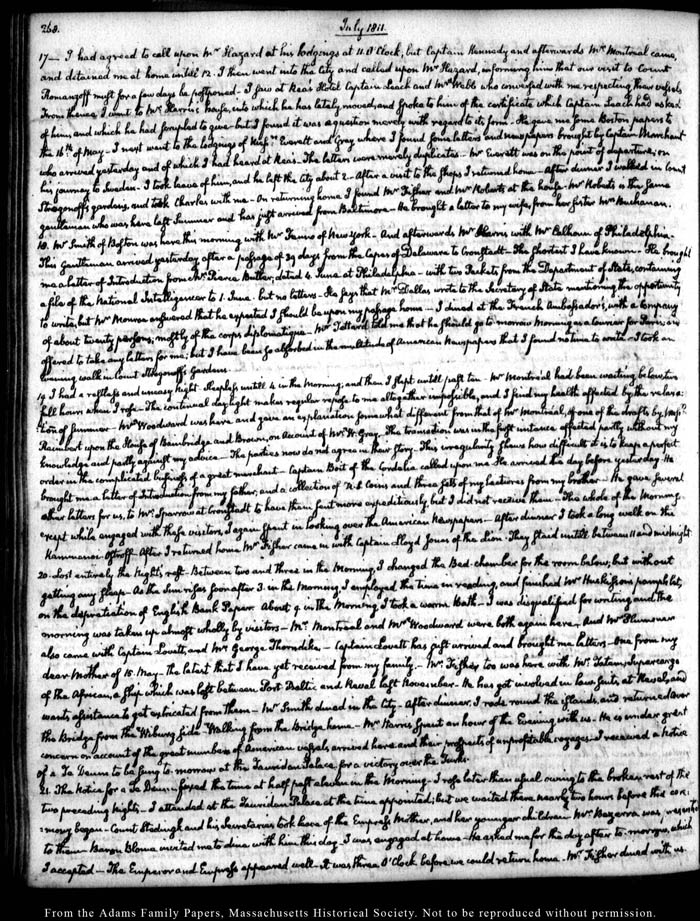 268.
July 1811.
17 — I had agreed to call upon Mr Hazard at his lodgings at 11. O'Clock, but Captain Kennedy and afterwards Mr Montreal came,
and detained me at home untill 12. I then went into the City and called upon Mr Hazard, informing him that our visit to Count
Romanzoff must for a few days be postponed — I saw at Reas Hotel Captain Leach and Mr Webb who conversed with me respecting their vessels
From thence I went to Mr Harris's house, into which he has lately moved, and spoke to him of the certificate which Captain Leach had asked
of him, and which he had scrupled to give — but I found it was a question merely with regard to its form — He gave me some Boston papers to
the 16th of May — I next went to the lodgings of Messrs Everett and Gray where I found some letters and newspapers brought by Captain Marchant
who arrived yesterday and of which I had heard at Reas. The letters were merely duplicates — Mr Everett was on the point of departure, on
his journey to Sweden — I took leave of him, and he left the City about 2 — After a visit to the shops I returned home — After dinner I walked in Count
Strogonoff's gardens, and took Charles with me — On returning home I found Mr Fisher and Mr Roberts at the house — Mr Roberts is the same
gentleman who was here last Summer and has just arrived from Baltimore — He brought a letter to my wife, from her sister Mrs Buchanan.
18. Mr Smith of Boston was here this morning with Mr James of New York — And afterwards Mr Harris with Mr Calhoun of Philadelphia —
This Gentleman arrived yesterday, after a passage of 39 days from the Capes of Delaware to Cronstadt — The shortest I have known — He brought
me a letter of Introduction from Mr Pierce Butler, dated 4. June at Philadelphia — with two Packets from the Department of State, containing
a file of the National Intelligencer to 1. June — but no letters — He says that Mr Dallas wrote to the Secretary of State mentioning the opportunity
to write, but Mr Monroe answered that he expected I should be upon my passage home — I dined at the French Ambassador's, with a company
of about twenty persons, mostly of the corps diplomatique — Mr told me that he should go to morrow Morning as a Courier for Paris, and
offered to take any letters for me; but I have been so absorbed in the multitude of American Newspapers that I found no time to write — I took an
evening walk in Count Strogonoff's Gardens.
19. I had a restless and uneasy Night — Sleepless untill 4 in the Morning, and then I slept untill past ten — Mr Montreal had been waiting below two
full hours when I rose — The continual daylight makes regular repose to me altogether impossible, and I find my health affected by the relaxa-
tion of Summer — Mr Woodward was here and gave an explanation somewhat different from that of Mr Montreal, of one of the drafts by Messrs
Raimbert upon the House of Bainbridge and Brown, on Account of Mr W. Gray. The transaction was in the first instance effected partly without my
knowledge and partly against my advice — The parties now do not agree in their story — This irregularity shews how difficult it is to keep a perfect
order in the complicated business of a great merchant — Captain Boit of the Cordelia called upon me — He arrived the day before yesterday. He
brought me a letter of Introduction from my father, and a collection of Coins and three sets of my lectures from my brother — He gave several
other letters for us, to Mr Sparrow at Cronstadt to have them sent more expeditiously, but I did not receive them — The whole of the Morning
except while engaged with these visitors, I again spent in looking over the American Newspapers — After dinner I took a long walk on the
Kammanoi Ostroff. After I returned home Mr Fisher came in with Captain Lloyd Jones of the Lion — They staid untill between 11 and midnight
20. Lost entirely the Night's rest — Between two and three in the Morning, I changed the Bed-chamber for the room below, but without
getting any sleep — As the Sun rises soon after 3. in the Morning, I employed the time in reading, and finished Mr Huskisson's pamphlet,
on the depreciation of English Bank Paper — About 9. in the Morning, I took a warm Bath — I was disqualified for writing and the
morning was taken up almost wholly by visitors — Mr Montreal and Mr Woodward were both again here, And Mr Plummer
also came with Captain Lovett, and Mr George Thorndike — Captain Lovett has just arrived and brought me letters — One from my
dear Mother of 15. May — the latest that I have yet received from my family — Mr Fisher too was here with Mr Tatem, Supercargo
of the African, a ship which was lost between Port Baltic and Reval last November — He has got involved in law suits, at Reval, and
wants assistance to get extricated from them — Mr Smith dined in the City — After dinner, I rode round the islands, and returned over
the Bridge from the Wiburg side — Walking from the Bridge home — Mr Harris spent an hour of the Evening with us — He is under great
concern on account of the great numbers of American vessels, arrived here and their prospects of unprofitable voyages — I received a Notice
of a Te Deum to be sung to-morrow at the Tauridan Palace, for a victory over the Turks.
21. The Notice for a Te Deum fixed the time at half past eleven in the Morning — I rose later than usual owing to the broken rest of the
two preceding Nights — I attended at the Tauridan Palace at the time appointed; but we waited there nearly two hours before the cere-
mony began — Count Stedingk and his Secretaries took leave of the Empress Mother, and her younger children — Mr was presented
to them — Baron Blome invited me to dine with him this day — I was engaged at home — He asked me for the day after to-morrow, which
I accepted — The Emperor and Empress appeared well — It was three O'Clock before we could return home — Mr Fisher dined with us.
From the Adams Family Papers, Massachusetts Historical Society. Not to be reproduced without permission.